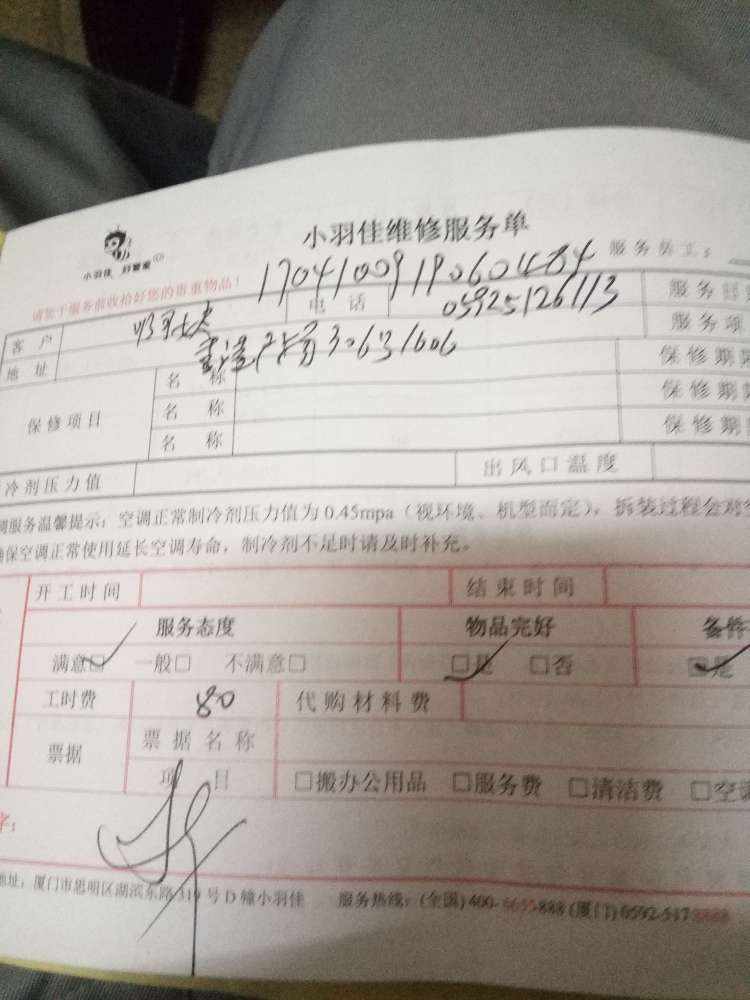 小羽佳维修服务单
小羽佳 好管家
服务员工:
请您于服务前收拾好您的贵重物品!
17041009190601484
客户 电话 05925126113
地址 30631606 服务项
保修项目
名称 保修期限
名称 保修期限
名称 保修期限
冷剂压力值 出风口温度
调服务温馨提示:空调正常制冷剂压力值为0.45mpa(视环境、机型而定),拆装过程会对空
确保空调正常使用延长空调寿命,制冷剂不足时请及时补充。
开工时间 结束时间
服务态度 物品完好 备件
满意□ 一般□ 不满意□ □是 □否 □是
工时费 80 代购材料费
票据 票据名称
项目 □搬办公用品 □服务费 □清洁费 □空调
字:
地址:厦门市思明区湖滨东路319号D幢小羽佳 服务热线:(全国)400-6655-888(厦门)0592-5178888